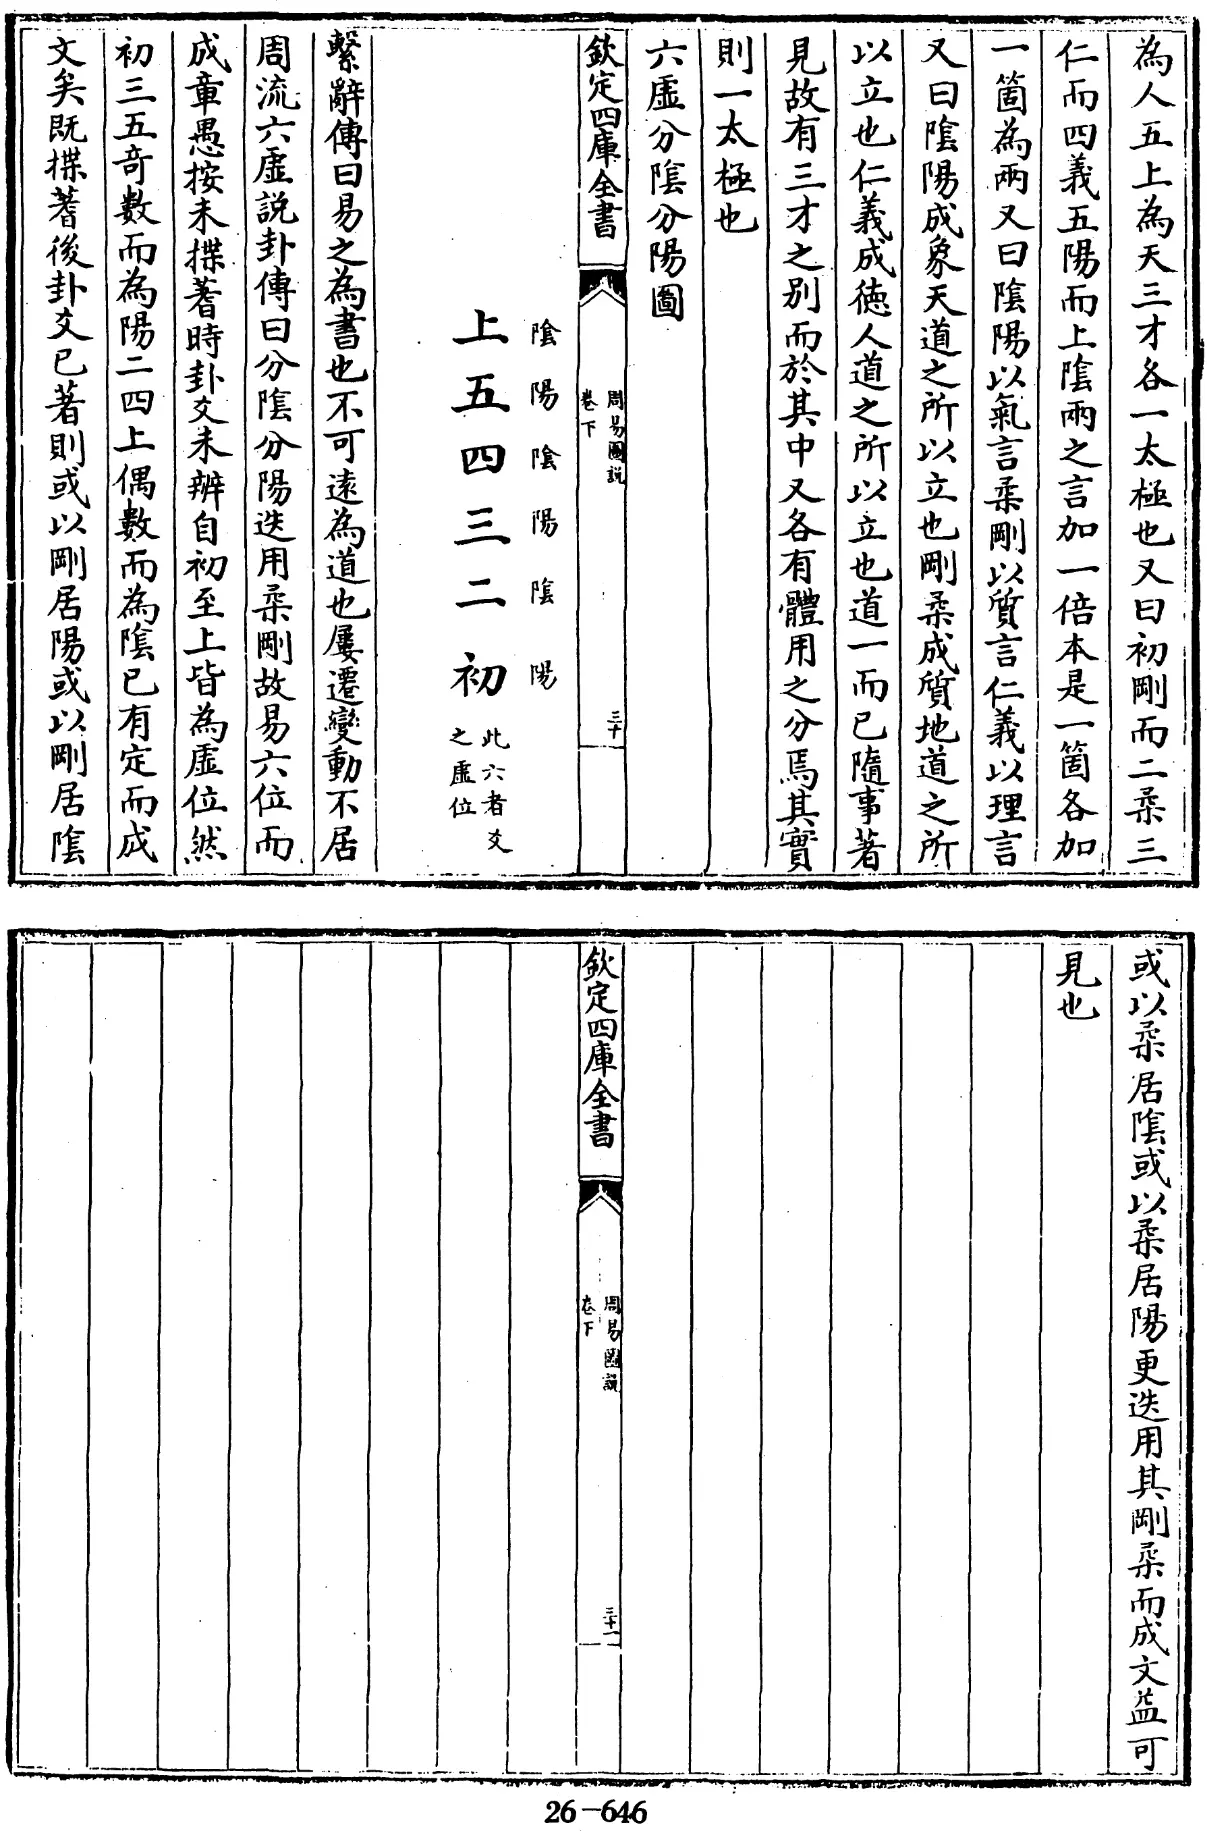 為人五上為天三才各一太極也又曰初剛而二柔三
仁而四義五陽而上陰兩之言加一倍本是一箇各加
一箇為兩又曰陰陽以氣言柔剛以質言仁義以理言
又曰陰陽成象天道之所以立也剛柔成質地道之所
以立也仁義成德人道之所以立也道一而已隨事著
見故有三才之別而於其中又各有體用之分焉其實
則一太極也
六虛分陰分陽圖
欽定四庫全書
周易圖說
卷下
三十
陰陽陰陽陰陽
上五四三二初
此六者爻
之虛位
繫辭傳曰易之為書也不可遠為道也屢遷變動不居
周流六虛說卦傳曰分陰分陽迭用柔剛故易六位而
成章愚按未揲蓍時卦爻未辨自初至上皆為虛位然
初三五奇數而為陽二四上偶數而為陰已有定而成
文矣既揲蓍後卦爻已著則或以剛居陽或以剛居陰
或以柔居陰或以柔居陽更迭用其剛柔而成文益可
見也
欽定四庫全書
周易圖說
卷下
三十一
26-646